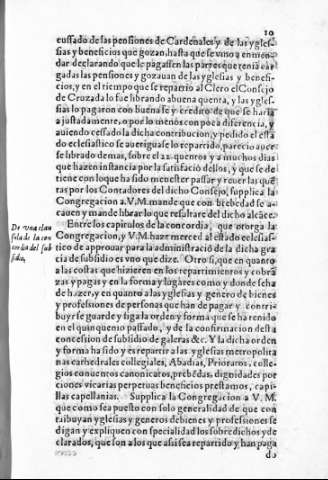 10
cussado de las pensiones de Cardenales y de las ygles-
sias y beneficios que gozan, hasta que se vino a enmen-
dar declarando que le pagassen las partes que tenia car
gadas las pensiones y gozauan de las yglesias y benefi-
cios, y en el tiempo que se repartio al Clero el Consejo
de Cruzada lo fue librando abuena quenta, y las ygles-
sias lo pagaron con buena fe y credito de que se haria
ajustadamente, o por lo menos con poca diferencia, y
auiendo cessado la dicha contribucion, y pedido el esta
do eclesiastico se aueriguase lo repartido, parecio auer
se librado demas, sobre el quentos y a muchos dias
que hazen instancia por la satisfacion dellos, y que se de
tiene con loque ha sido menester passar y rouer las quē
tas por los Contadores del dicho Consejo, suplica la
Congregacion a V. M. mande que con brebedad se a-
cauen y mande librar lo que resultare del dicho alcāce.
Entre los capitulos de la concordia, que otorga la
Congregacion, y V. M. hazer merced al estado eclesias-
tico de aprouar para la administració de la dicha gra
cia de subsidio es vno que dize. Otro si, que en quanto
a las costas que hizieren en los repartimientos y cobrā
zas y pagas y en la forma y lugares como y donde se ha
de hazer, y en quanto a las yglesias y genero de bienes
y professiones de personas que han de pagar y contri-
buyr se guarde y siga la orden y forma que se ha tenido
en el quinquenio passado, y de la confirmacion desta
concession de subsidio de galeras &c. Y la dicha orden
y forma ha sido y es repartir a las yglesias metropolita
nas cathedrales collegiales, Abadias, Prioratos, colle-
gios conuentos canonicatos, prebēdas, dignidades por
ciones vicarias perpetuas beneficios prestamos, capi-
llas capellanias. Suplica la Congregacion a V. M.
que como sea puesto con solo generalidad de que con
tribuyan yglesias y generos debienes y professiones se
digan y expliquen con specialidad los sobredichos y de
clarados, que son a los que assi sea repartido y han paga
do
De vna clau
sula de la con
cordia del sub
sidio,